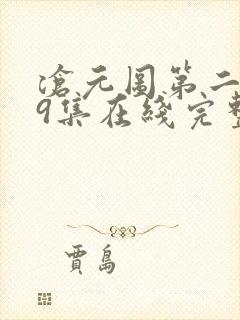 滄元图第二
9集在綫完整
贾島